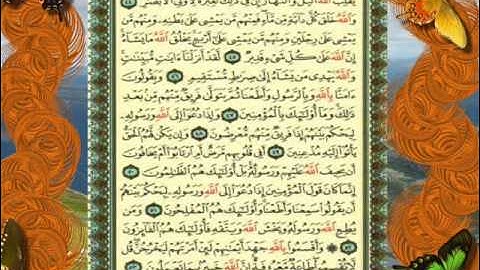 يُقَلِّبُ ٱللَّهُ ٱلَّيْلَ وَٱلنَّهَارَ إِنَّ فِي ذَٰلِكَ لَعِبْرَةً لِّأُو۟لِي ٱلْأَبْصَٰرِ ٤٤
وَٱللَّهُ خَلَقَ كُلَّ دَآبَّةٍ مِّن مَّآءٍ فَمِنْهُم مَّن يَمْشِي عَلَىٰ بَطْنِهِۦ وَمِنْهُم مَّن
يَمْشِي عَلَىٰ رِجْلَيْنِ وَمِنْهُم مَّن يَمْشِي عَلَىٰٓ أَرْبَعٍ يَخْلُقُ ٱللَّهُ مَا يَشَآءُ
إِنَّ ٱللَّهَ عَلَىٰ كُلِّ شَيْءٍ قَدِيرٌ ٤٥ لَّقَدْ أَنزَلْنَآ ءَايَٰتٍ مُّبَيِّنَٰتٍ
وَٱللَّهُ يَهْدِي مَن يَشَآءُ إِلَىٰ صِرَٰطٍ مُّسْتَقِيمٍ ٤٦ وَيَقُولُونَ
ءَامَنَّا بِٱللَّهِ وَبِٱلرَّسُولِ وَأَطَعْنَا ثُمَّ يَتَوَلَّىٰ فَرِيقٌ مِّنْهُم مِّنۢ بَعْدِ
ذَٰلِكَ وَمَآ أُو۟لَٰٓئِكَ بِٱلْمُؤْمِنِينَ ٤٧ وَإِذَا دُعُوٓا۟ إِلَى ٱللَّهِ وَرَسُولِهِۦ
لِيَحْكُمَ بَيْنَهُمْ إِذَا فَرِيقٌ مِّنْهُم مُّعْرِضُونَ ٤٨ وَإِن يَكُن لَّهُمُ ٱلْحَقُّ
يَأْتُوٓا۟ إِلَيْهِ مُذْعِنِينَ ٤٩ أَفِي قُلُوبِهِم مَّرَضٌ أَمِ ٱرْتَابُوٓا۟ أَمْ يَخَافُونَ
أَن يَحِيفَ ٱللَّهُ عَلَيْهِمْ وَرَسُولُهُۥ بَلْ أُو۟لَٰٓئِكَ هُمُ ٱلظَّٰلِمُونَ ٥٠
إِنَّمَا كَانَ قَوْلَ ٱلْمُؤْمِنِينَ إِذَا دُعُوٓا۟ إِلَى ٱللَّهِ وَرَسُولِهِۦ لِيَحْكُمَ بَيْنَهُمْ
أَن يَقُولُوا۟ سَمِعْنَا وَأَطَعْنَا وَأُو۟لَٰٓئِكَ هُمُ ٱلْمُفْلِحُونَ ٥١ وَمَن
يُطِعِ ٱللَّهَ وَرَسُولَهُۥ وَيَخْشَ ٱللَّهَ وَيَتَّقْهِ فَأُو۟لَٰٓئِكَ هُمُ ٱلْفَآئِزُونَ ٥٢
وَأَقْسَمُوا۟ بِٱللَّهِ جَهْدَ أَيْمَٰنِهِمْ لَئِنْ أَمَرْتَهُمْ لَيَخْرُجُنَّ قُل
لَّا تُقْسِمُوا۟ طَاعَةٌ مَّعْرُوفَةٌ إِنَّ ٱللَّهَ خَبِيرٌۢ بِمَا تَعْمَلُونَ ٥٣